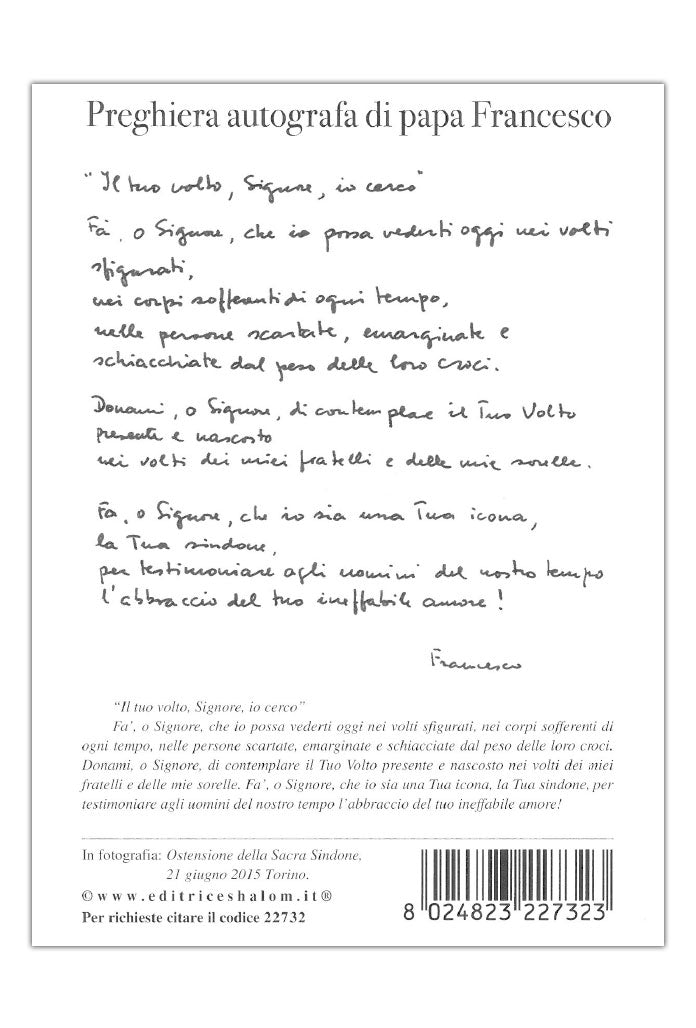 Preghiera autografa di papa Francesco
"Il tuo volto, Signore, io cerco"
Fa', o Signore, che io possa vederti oggi nei volti
sfigurati,
nei corpi sofferenti di ogni tempo,
nelle persone scartate, emarginate e
schiacchiate dal peso delle loro croci.
Donami, o Signore, di contemplare il Tuo Volto
presente e nascosto
nei volti dei miei fratelli e delle mie sorelle.
Fa, o Signore, che io sia una Tua icona,
la Tua sindone,
per testimoniare agli uomini del nostro tempo
l'abbraccio del tuo ineffabile amore!
Francesco
“Il tuo volto, Signore, io cerco”
Fa’, o Signore, che io possa vederti oggi nei volti sfigurati, nei corpi sofferenti di
ogni tempo, nelle persone scartate, emarginate e schiacciate dal peso delle loro croci.
Donami, o Signore, di contemplare il Tuo Volto presente e nascosto nei volti dei miei
fratelli e delle mie sorelle. Fa’, o Signore, che io sia una Tua icona, la Tua sindone, per
testimoniare agli uomini del nostro tempo l’abbraccio del tuo ineffabile amore!
In fotografia: Ostensione della Sacra Sindone,
21 giugno 2015 Torino.
©www.editriceshalom.it®
Per richieste citare il codice 22732
8 024823 227323